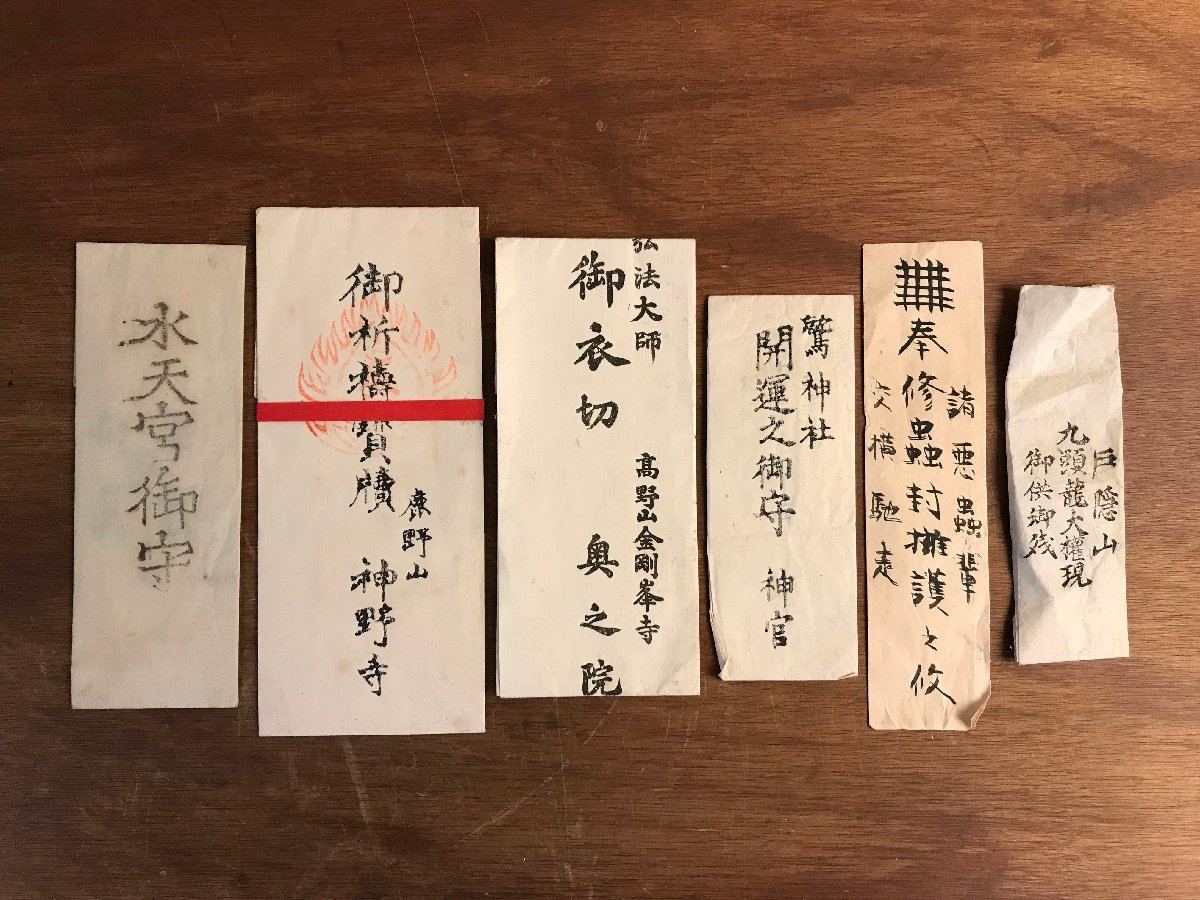 水天宮御守
鹿野山
御祈禱寳牘 神野寺
弘法大師 高野山金剛峯寺
御衣切 奥之院
鷲神社
開運之御守 神官
諸悪蟲輩
奉修蟲封擁護之攸
交横馳走
戸隠山
九頭龍大權現
御供御残